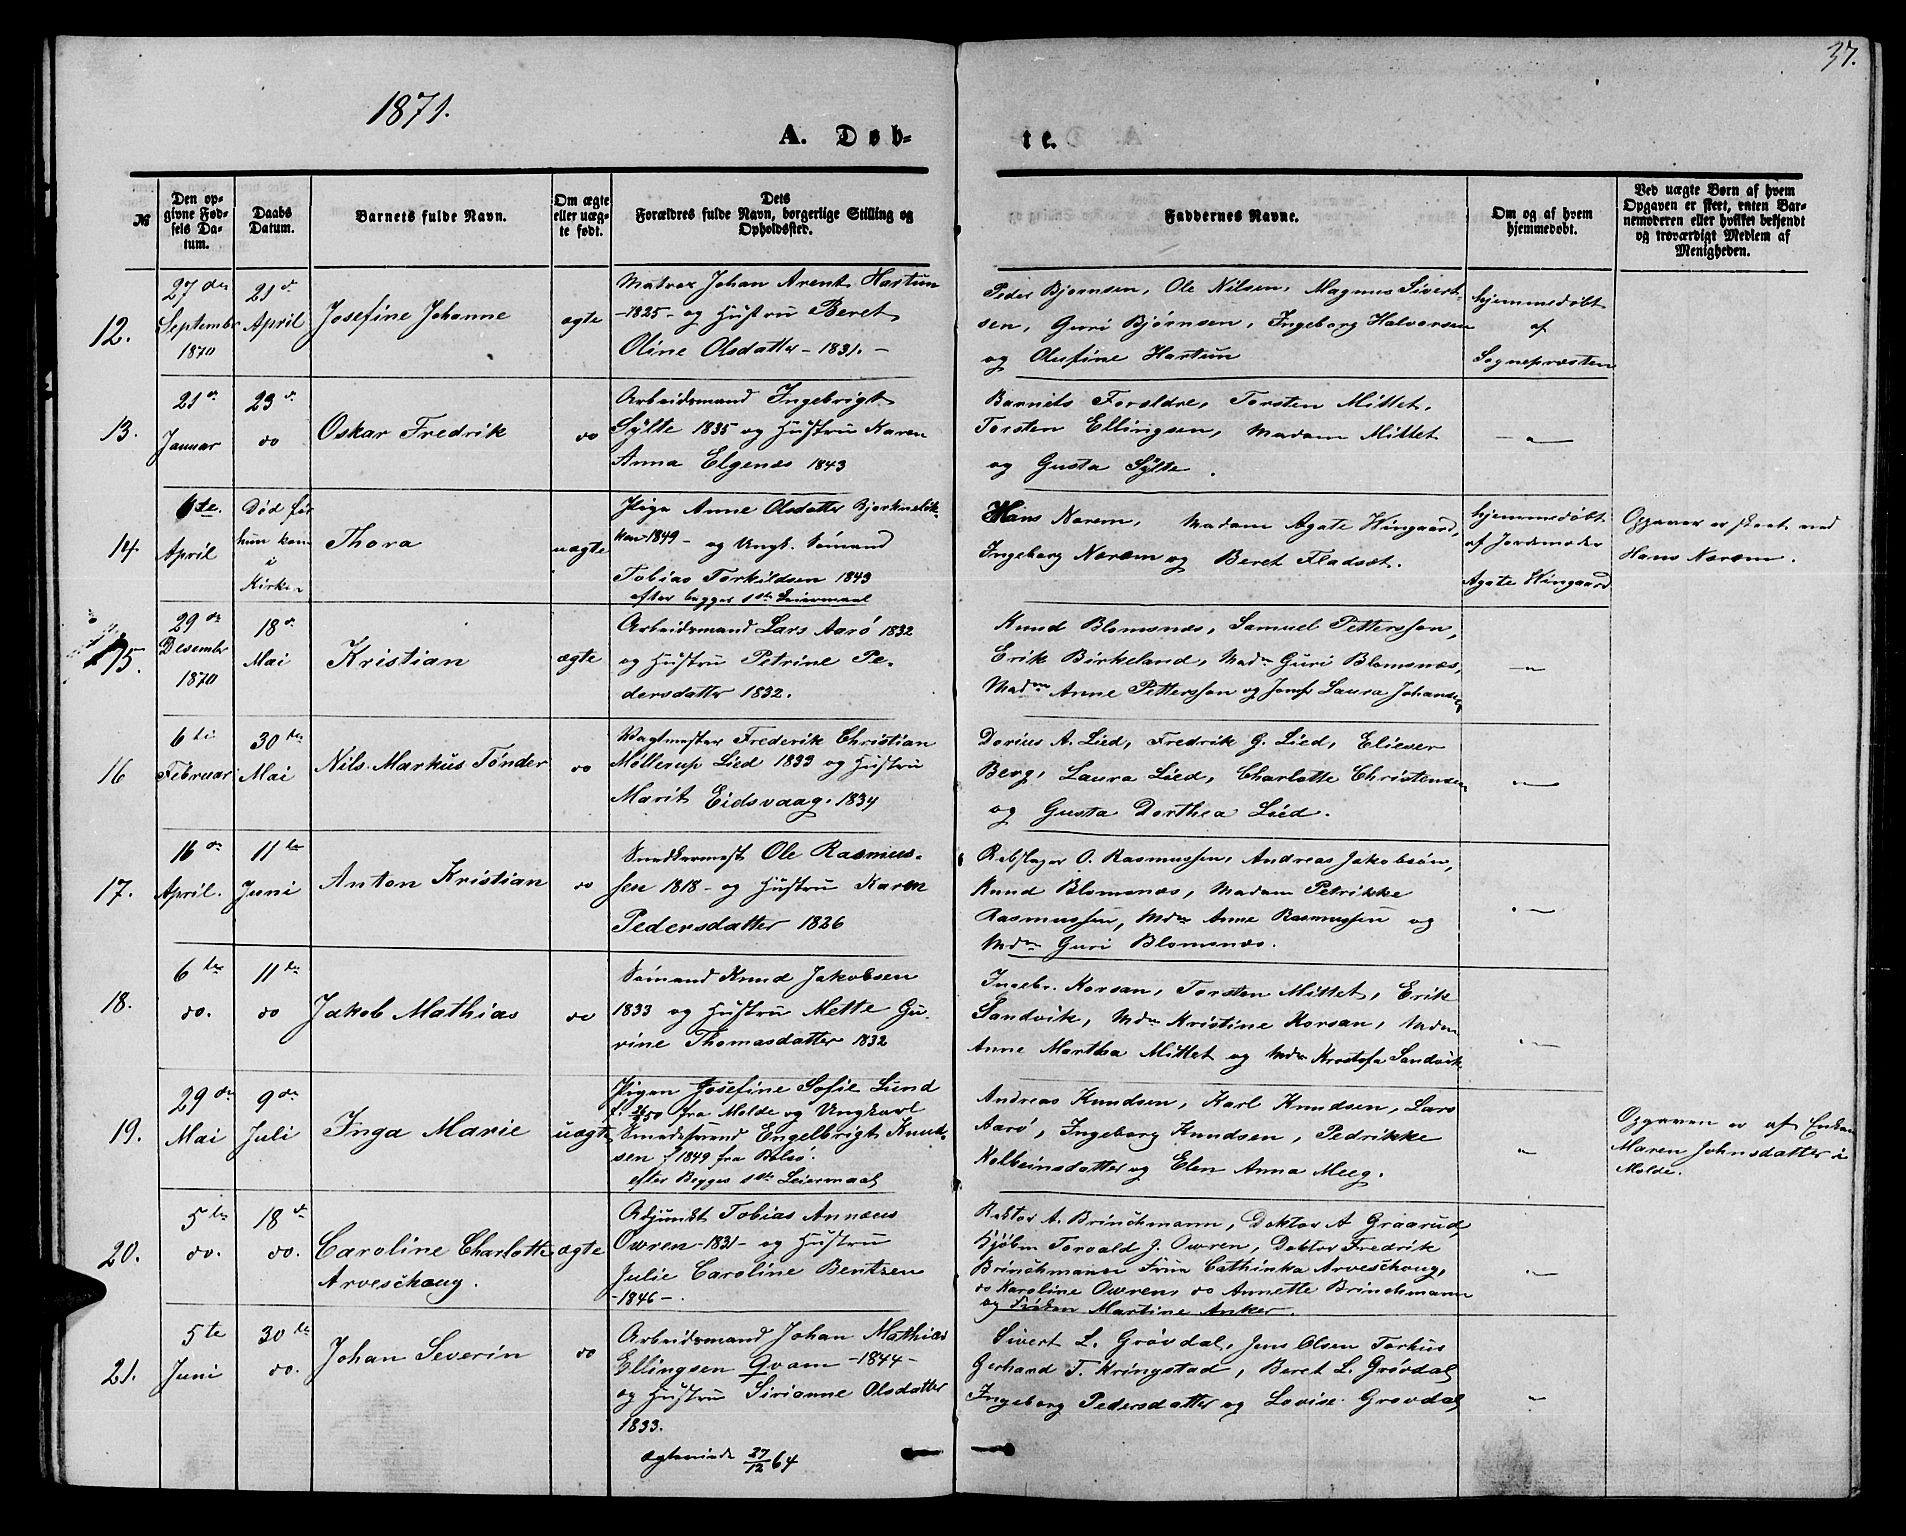 37.
1871.
A. Døb-
te.
№
Den op-
givne Fød-
sels Da-
tum.
Daabs
Datum.
Barnets fulde Navn.
Om ægte
eller uæg-
te født.
Dets
Forældres fulde Navn, borgerlige Stilling og
Opholdssted.
Faddernes Navne.
Om og af hvem
hjemmedøbt.
Ved uægte Børn af hvem
Opgaven er skeet, enten Bar-
nemoderen eller hvilket bekjendt
og troværdigt Medlem af
Menigheden.
12.
27de
September
1870
21de
April
Josefine Johanne
ægte
Matros Johan Arent Hastun
-1825- og Hustru Beret
Oline Olsdatter -1831.-
Peder Bjørnsen, Ole Nilsen, Magnus Sivert-
sen, Guri Bjørnsen, Ingeborg Halvorsen
og Olufine Hastun
hjemmedøbt
af
Sognepræsten
13.
21de
Januar
23de
do
Oskar Fredrik
do
Arbeidsmand Ingebrigt
Sylte 1835 og Hustru Karen
Anna Elgenæs 1843
Barnets Forældre, Torsten Mittet,
Torsten Ellingsen, Madam Mittet
og Gusta Sylte.
-"-
14
6te
April
Død før
hun kom
i
Kirken
Thora
uægte
Pige Anne Olsdatter Bjerkneslik-
ken 1849- og Ungk. Sømand
Tobias Torkildsen 1843
efter begges 1ste Leiermaal
Hans Nærem, Madam Agate Hingaard,
Ingeborg Nærem og Beret Fladsæt.
hjemmedøbt
af Jordemoder
Agate Hingaard
Opgaven er skeet ved
Hans Nærem.
15.
29de
Desember
1870
18de
Mai
Kristian
ægte
Arbeidsmand Lars Aarø 1832
og Hustru Petrine Pe-
dersdatter 1832.
Knud Blomsnæs, Samuel Pettersson,
Erik Birkeland, Madm Guri Blomsnæs,
Madm Anne Pettersson og Jomf Laura Johansen
-"-
16
6te
Februar
30te
Mai
Nils Markus Tønder
do
Vagtmester Frederik Christian
Møllerup Lied 1833 og Hustru
Marit Eidsvaag. 1834
Dorius A. Lied, Fredrik G. Lied, Elieser
Berg, Laura Lied, Charlotte Christensen
og Gusta Dorthea Lied.
-"-
17.
16de
April.
11te
Juni
Anton Kristian
do
Snedkermest Ole Rasmus-
sen 1818- og Hustru Karen
Pedersdatter 1826
Rebslager O. Rasmussen, Andreas Jakobsøn,
Knud Blomsnæs, Madam Petrikke
Rasmussen, Mdm Anne Rasmussen og
Mdm Guri Blomsnæs.
-"-
18.
6te
do.
11te
do
Jakob Mathias
do
Sømand Knud Jakobsen
1833 og Hustru Mette Gu-
rine Thomasdatter 1832
Ingebr. Korsan, Torsten Mittet, Erik
Sandvik, Mdm Kristine Korsan, Mdm
Anne Martha Mittet og Mdm Kristofa Sandvik
-"-
19.
29de
Mai
9de
Juli
Inga Marie
uægte
Pigen Josefine Sofie Lund
fra Molde og Ungkarl
Smedesvend Engelbrigt Knud-
sen f 1849 fra Bolsø.
efter Begges 1ste Leiermaal
Andreas Knudsen, Karl Knudsen, Lars
Aarø, Ingeborg Knudsen, Pedrikke
Kolbeinsdatter og Elen Anna Meeg.
"
Opgaven er af Enken
Maren Johnsdatter i
Molde.
20.
5te
do.
18de
do.
Caroline Charlotte
Arveschoug.
ægte
Adjunkt Tobias Annæus
Owren -1831- og Hustru
Julie Caroline Bentzen
-1846-.
Rektor A. Brinchmann, Doktor A Graarud,
Kjøbm Torvald J. Owren, Doktor Fredrik
Brinchmann Frue Cathinka Arveschoug,
do Karoline Owren, do Annette Brinchmann
og Frøken Martine Anker.
-"-
21.
5te
Juni
30te
do.
Johan Severin
do
Arbeidsmand Johan Mathias
Ellingsen Qvam -1844-
og Hustru Sirianne Olsdatter
1833.
Ægteviede 27/12 64
Sivert L. Grøvdal, Jens Olsen Torhus
Gerhard T. Kringstad, Beret L. Grøvdal
Ingeborg Pedersdatter og Lovise Grøvdal
"